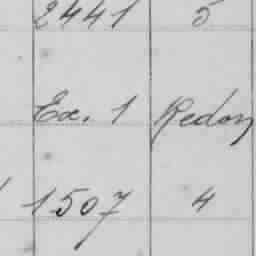 2441 5
Ex. 1 Redon
1507 4